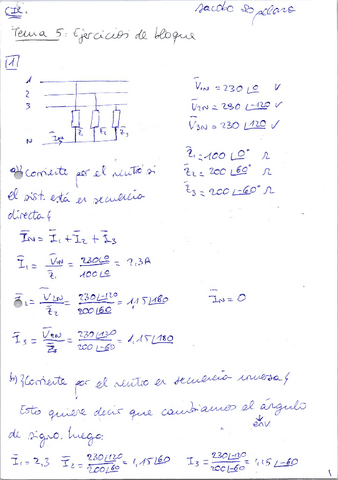 CIR.
Tema 5: Ejercicios de bloque
1
1
2
3
N
V̄1N = 230∠0 V
V̄2N = 230∠-120 V
V̄3N = 230∠120 V
Z̄1 = 100∠0° Ω
Z̄2 = 200∠60° Ω
Z̄3 = 200∠-60° Ω
a) ¿Corriente por el neutro si
el sist. está en secuencia
directa?
ĪN = Ī1 + Ī2 + Ī3
Ī1 = V̄1N/Z̄1 = 230∠0/100∠0 = 2,3A
Ī2 = V̄2N/Z̄2 = 230∠-120/200∠60 = 1,15∠180
ĪN = 0
Ī3 = V̄3N/Z̄3 = 230∠120/200∠-60 = 1,15∠180
b) ¿Corriente por el neutro en secuencia inversa?
Esto quiere decir que cambiamos el ángulo
de signo. Luego:
en V
Ī1 = 2,3 Ī2 = 230∠120/200∠60 = 1,15∠60 Ī3 = 230∠-120/200∠-60 = 1,15∠-60
1